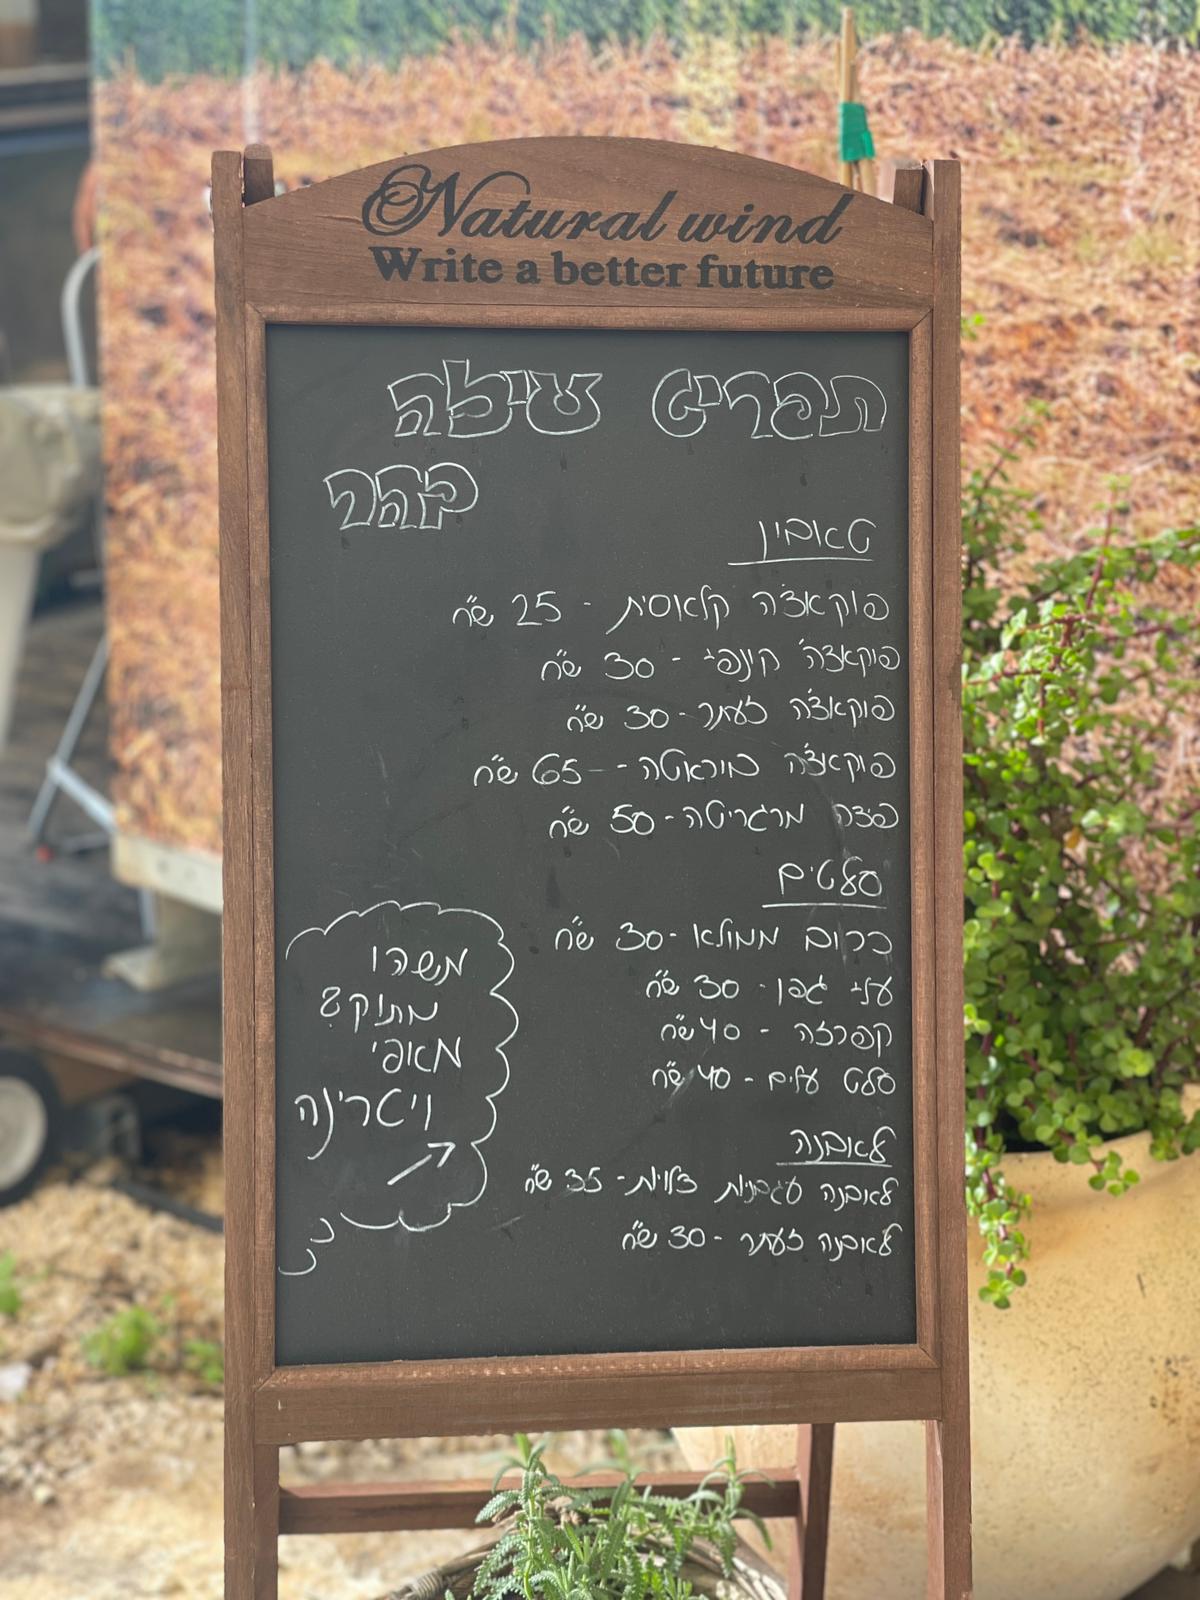 Natural wind
Write a better future
תפריט שילה
בהר
טאבון
פוקאצ'ה קלאסית - 25 ש"ח
פוקאצה' קינפג - 30 ש"ח
פוקאצ'ה זעתר - 30 ש"ח
פוקאצ'ה בוראטה - 65 ש"ח
פיצה מרגריטה - 50 ש"ח
סלטים
כרוב ממולא - 30 ש"ח
עלי גפן - 30 ש"ח
קפרזה - 40 ש"ח
סלט עלים - 40 ש"ח
לאבנה
לאבנה עגבניות צלויות - 35 ש"ח
לאבנה זעתר - 30 ש"ח
משהו
מתוק?
מאפי
ויטרינה